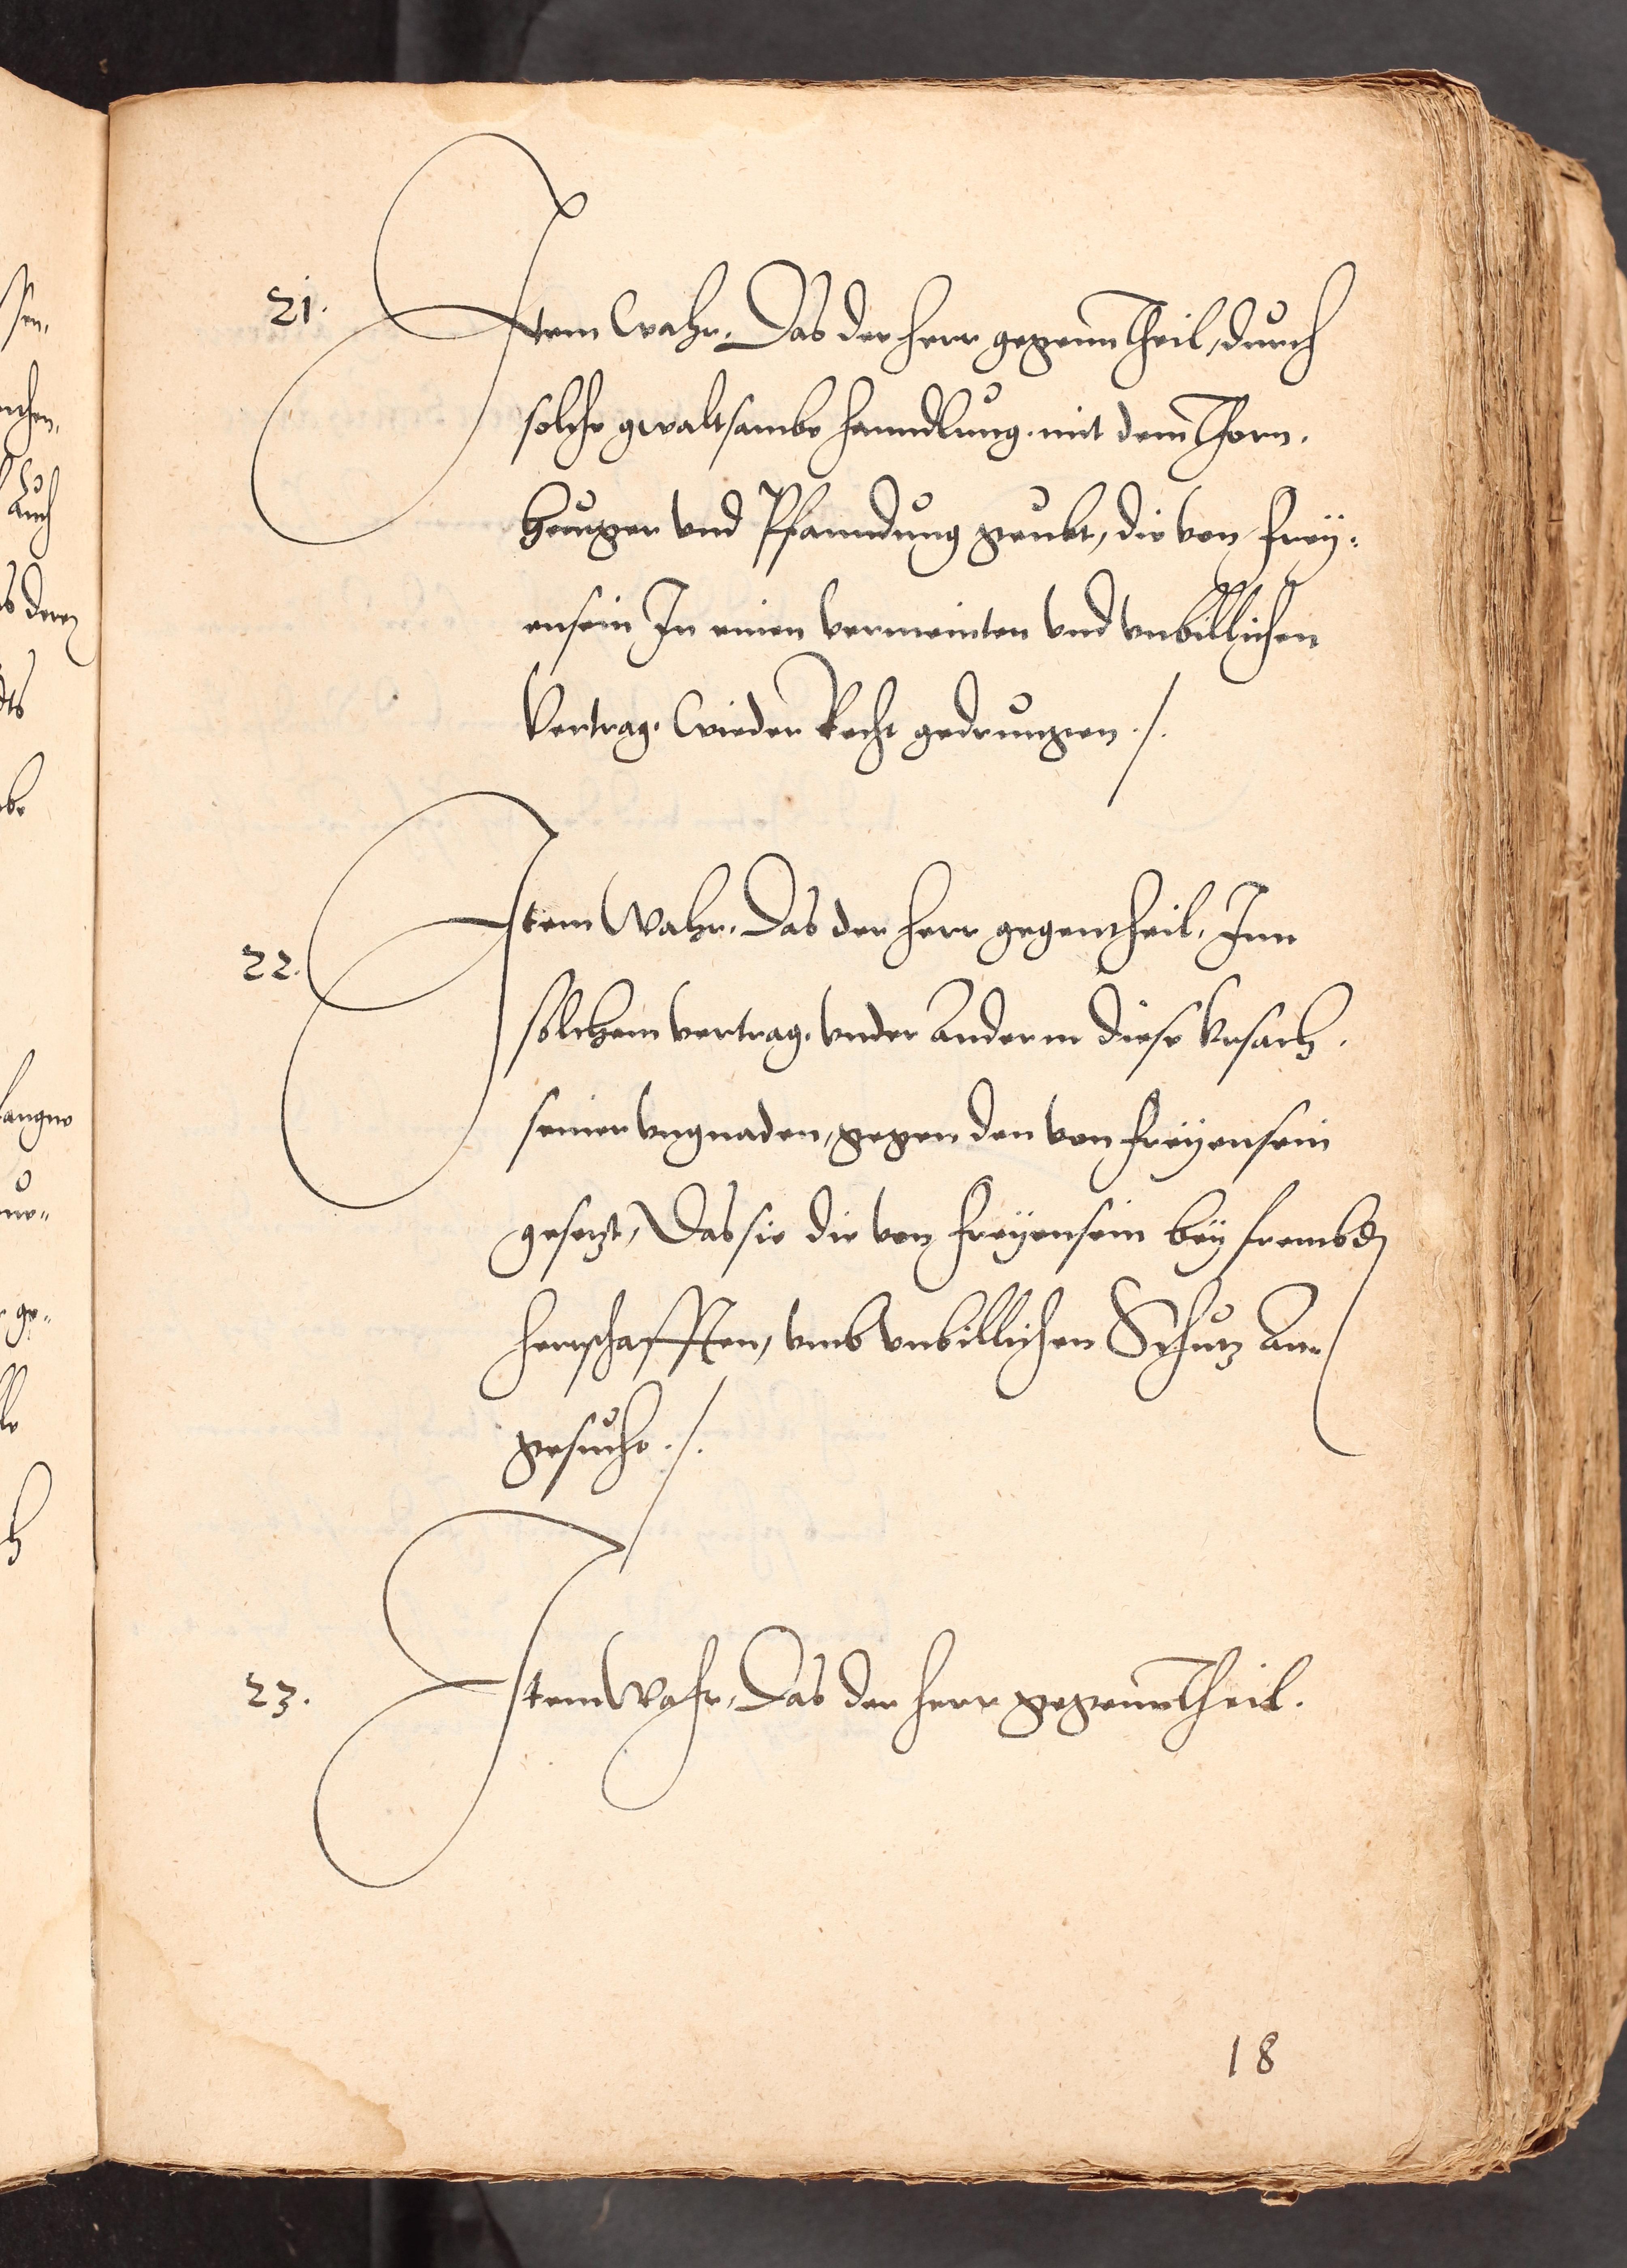 21. Item Wahr. Das der herr gegenn Theil, durch
solche gwaltsambe hanndlung. mit dem Thorn.
heuger vnd Pfanndung geubt, die von Frey-
ensein In einen vermeinten vnd vnbillichen
Vertrag. Wieder Recht gedrungen ./.
22. Item Wahr. Das der herr gegentheil. Inn
solchem vertrag. vnder Anderm diese Vrsach.
seiner vngnaden, gegen den von Freyensein
gesetzt, Das sie die von Freyensein bey frembdn
herrschafften, vmb vnbillichen Schutz An-
gesucht ./.
23. Item Wahr, Das der herr gegenn Theil.
18